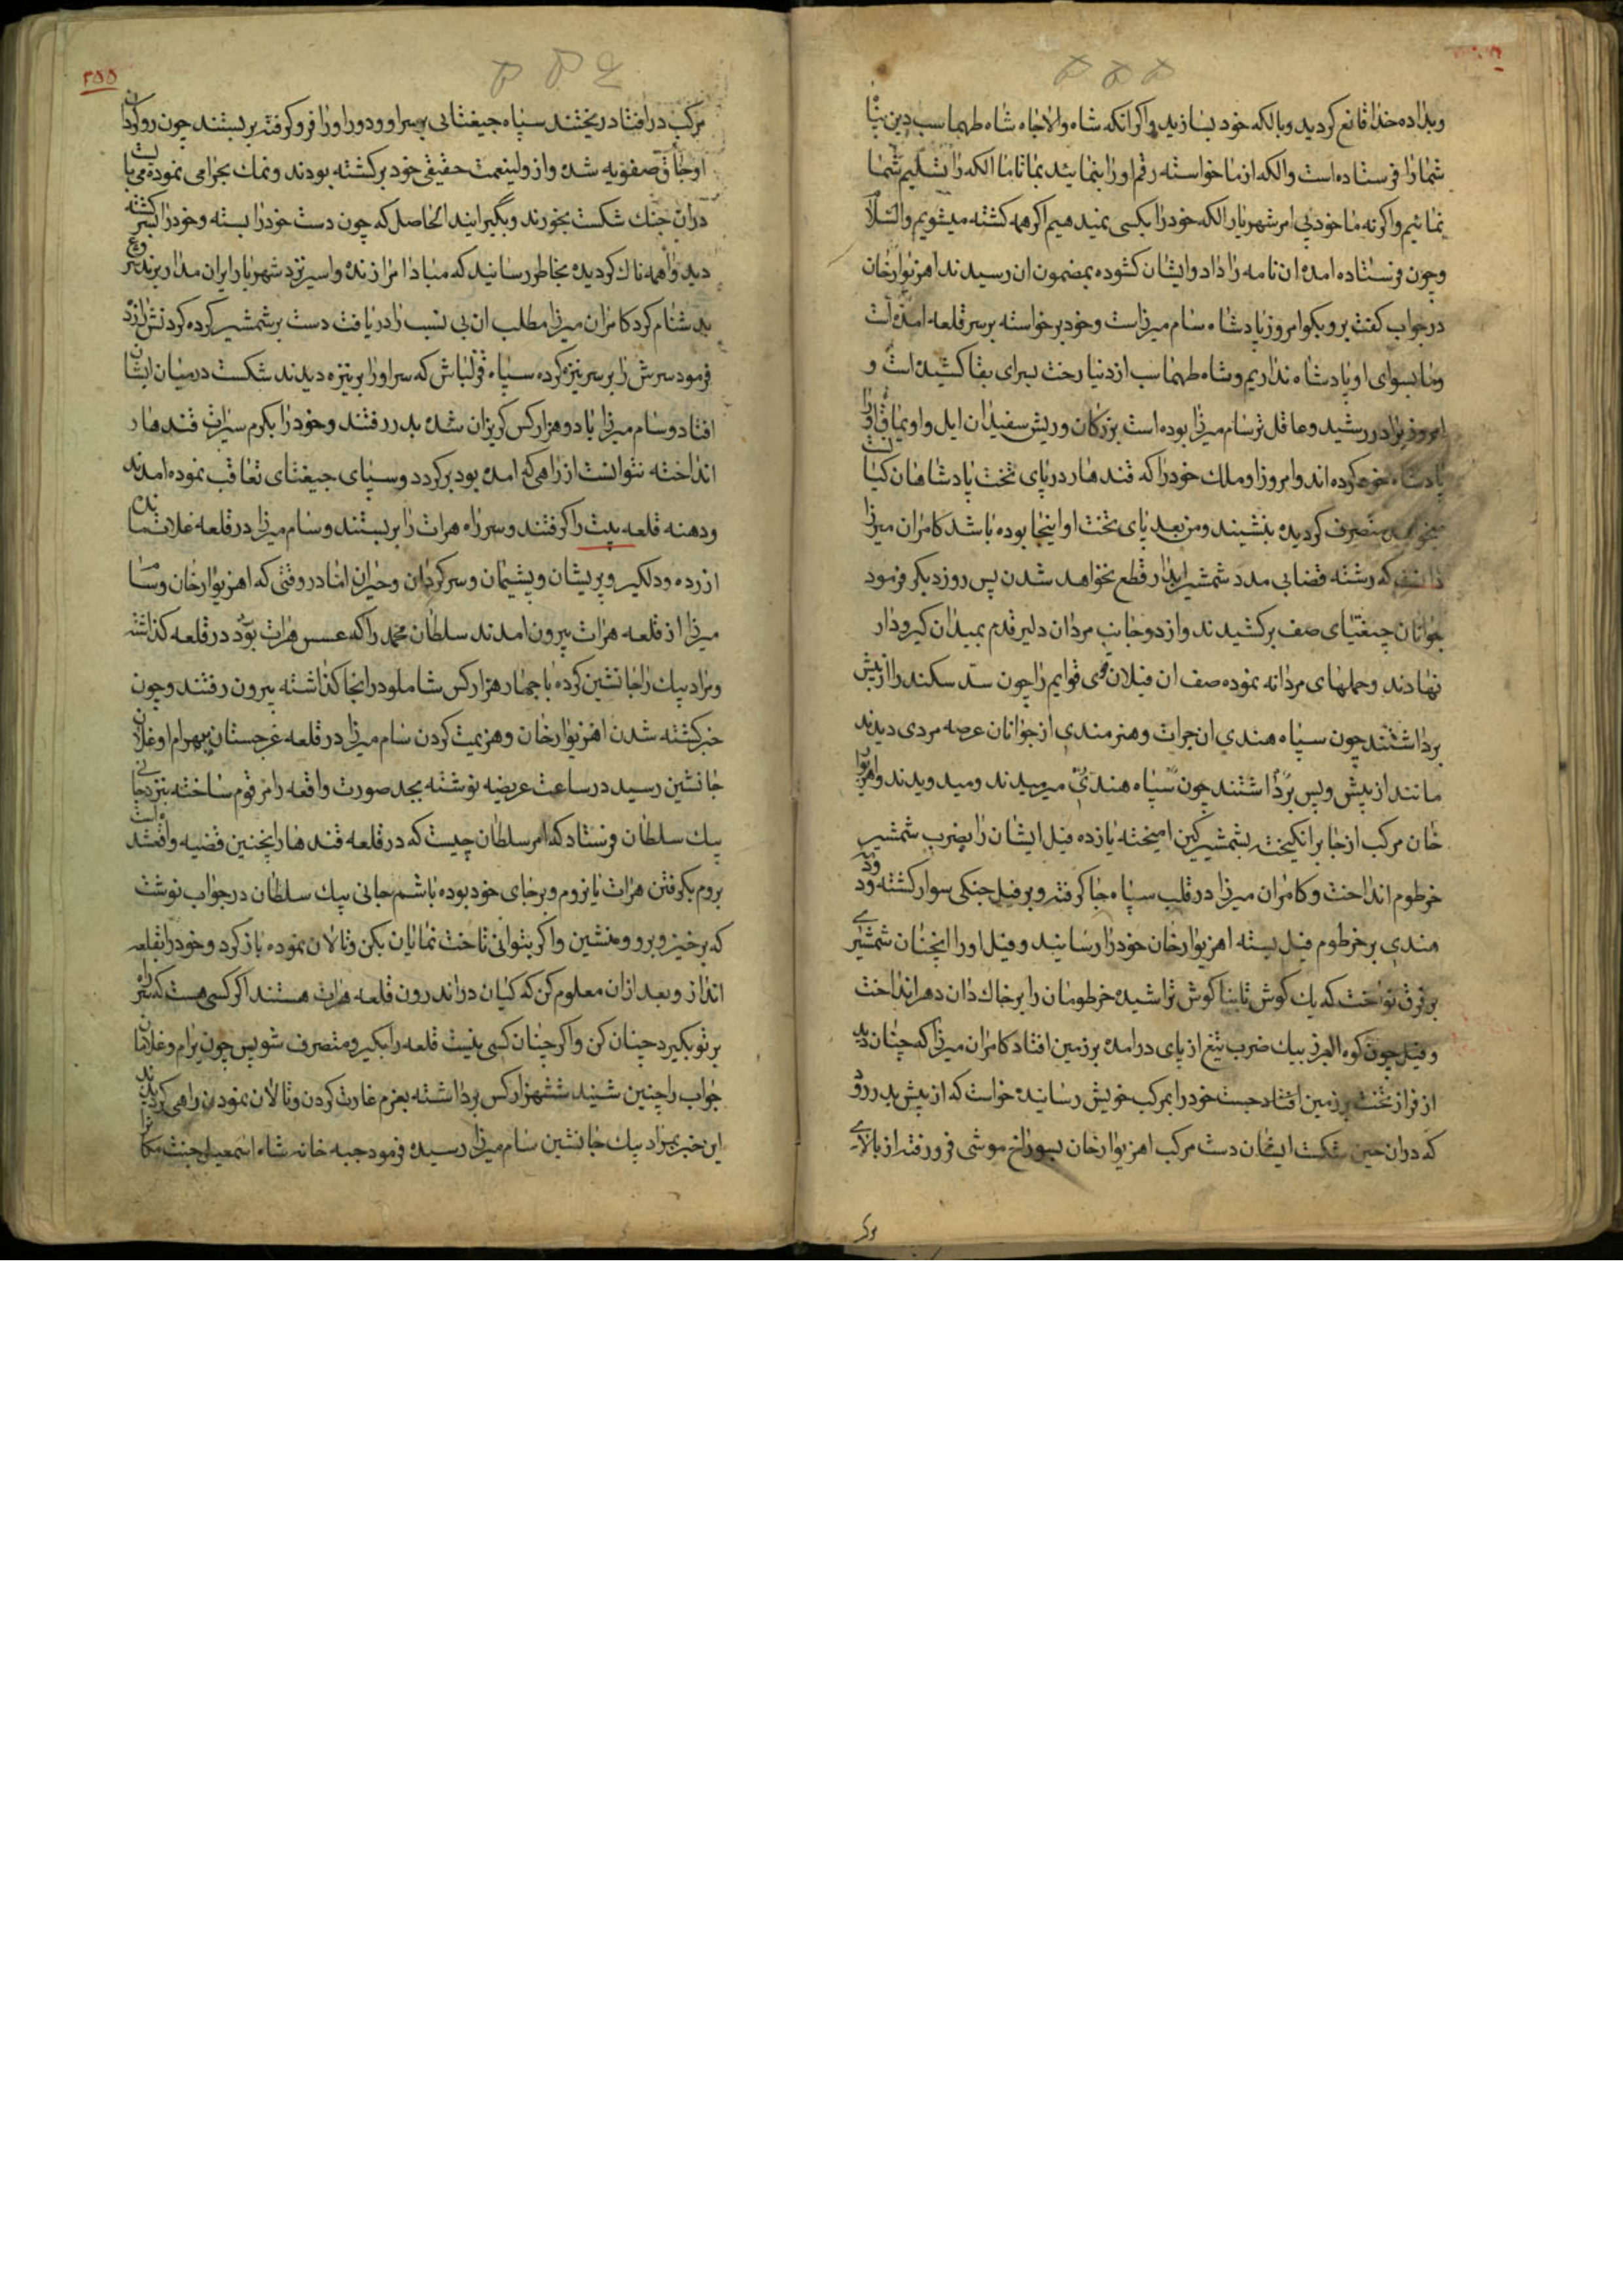 وبداده خدا قانع کردید وبالکه خود بسازید واکر انکه شاه والاجاه شاه طهماسب دین پناه
شما را فرستاده است والکه از ما خواسته رقم اورا بنمایید بما تا ما الکه را تسلیم شما
نمائیم واکر نه ما خود بی امر شهریار الکه خود را بکسی نمیدهیم اکر همه کشته میشویم والسلام
وچون فرستاده امده ان نامه را داد وایشان کشوده بمضمون ان رسیدند اهزیوار خان
در جواب کفت برو بکو امروز پادشاه سام میرزاست وخود برخواسته بر سر قلعه امده است
وما بسوای او پادشاه نداریم وشاه طهماسب از دنیا رخت بسرای بقا کشیده است و
امروز برادر رشید وعاقل تر سام میرزا بوده است بزرکان وریش سفیدان ایل واویماق اورا
پادشاه خود کرده اند وامروز او ملک خود را که قندهار در پای تخت پادشاهان کیانست
میخواهد متصرف کردیده بنشیند ومن بعد پای تخت او اینجا بوده باشد کامران میرزا
دانست که رشته قضابی مدد شمشیر ابدار قطع نخواهد شدن پس روز دیکر فرمود
جوانان جیغتای صف برکشیدند واز دو جانب مردان دلیر قدم بمیدان کیرودار
نهادند وحملهای مردانه نموده صف ان فیلان قوی قوایم را چون سد سکندر از پیش
برداشتند چون سپاه هندی ان جرات وهنرمندی از جوانان عرصه مردی دیدند
مانند از پیش وپس برداشتند چون سپاه هندی میرمیدند ومیدویدند واهزیوار
خان مرکب از جا برانکیخته بشمشیر کین امیخته یازده فیل ایشان را بضرب شمشیر
خرطوم انداخت وکامران میرزا در قلب سپاه جا کرفته وبر فیل جنکی سوار کشته بود
هندی بر خرطوم فیل بسته اهزیوار خان خود را رسانید وفیل او را انچنان شمشیری
بر فرق نواخت که یک کوش تا بنا کوش تراشیده خرطومان را بر خاک دان دهر انداخت
وفیل چون کوه البرز بیک ضرب تیغ از پای در امده بر زمین افتاد کامران میرزا که چنان دید
از فراز تخت بر زمین افتاد جست خود را بمرکب خویش رسانیده خواست که از پیش بدر رود
که دران حین شکست ایشان دست مرکب اهزیوار خان بسوراخ موشی فرو رفته از بالای
مرک
۲۵۵
مرکب در افتاد ریختند سپاه جیغتائی بر سر او ودور اورا فرو کرفته بربستند چون روکردان
اوجاق صفویه شده واز ولینعمت حقیقی خود برکشته بودند ونمک بحرامی نموده می بایست
دران جنک شکست بخورند وبکیر ایند الحاصل که چون دست خود را بسته وخود را اسیر کشته
دید واهمه ناک کردیده بخاطر رسانید که مبادا مرا زنده واسیر نزد شهریار ایران مدار برند شروع
بدشنام کرد کامران میرزا مطلب ان بی نسب را دریافت دست بر شمشیر کرده کردنش را زد
فرمود سرش را بر سر نیزه کرده سپاه قزلباش که سر اورا بر نیزه دیدند شکست در میان ایشان
افتاد وسام میرزا با دو هزار کس کریزان شده بدر رفتند وخود را بکرم سیرات قندهار
انداخته نتوانست از راهی که امده بود برکردد وسپای جیغتای تعاقب نموده امدند
ودهنه قلعه بیت را کرفتند وسر راه هرات را بربستند وسام میرزا در قلعه غلات بماند
ازرده ودلکیر وپریشان وپشیمان وسرکردان وحیران اما در وقتی که اهزیوار خان وسام
میرزا از قلعه هرات بیرون امدند سلطان محمد را که عسس هرات بود در قلعه کذاشته
ومراد بیک را جانشین کرده با چهار هزار کس شاملو در انجا کذاشته بیرون رفتند وچون
خبر کشته شدن اهزیوار خان وهزیمت کردن سام میرزا در قلعه غرجستان ببهرام اوغلان
جانشین رسید در ساعت عریضه نوشته بجد صورت واقعه را مرقوم ساخته بنزد جانی
بیک سلطان فرستاد که امر سلطان چیست که در قلعه قندهار اینچنین قضیه واقعشده است
بروم بکرفتن هرات یا نروم وبرجای خود بوده باشم جانی بیک سلطان در جواب نوشت
که برخیز وبرو ومنشین واکر بتوانی تاخت نمایان بکن وتالان نموده باز کرد وخود را بقلعه
انداز وبعد ازان معلوم کن که کیان در اندرون قلعه هرات هستند اکر کسی هست که سر راه
بر تو بکیرد چنان کن واکر چنان کسی نیست قلعه را بکیر ومتصرف شو پس چون بیرام وغلان
جواب را چنین شنید ششهزار کس برداشته بعزم غارت کردن وتالان نمودن راهی کردیدند
این خبر بمراد بیک جانشین سام میرزا رسیده فرمود جبه خانه شاه اسمعیل جنت مکان را